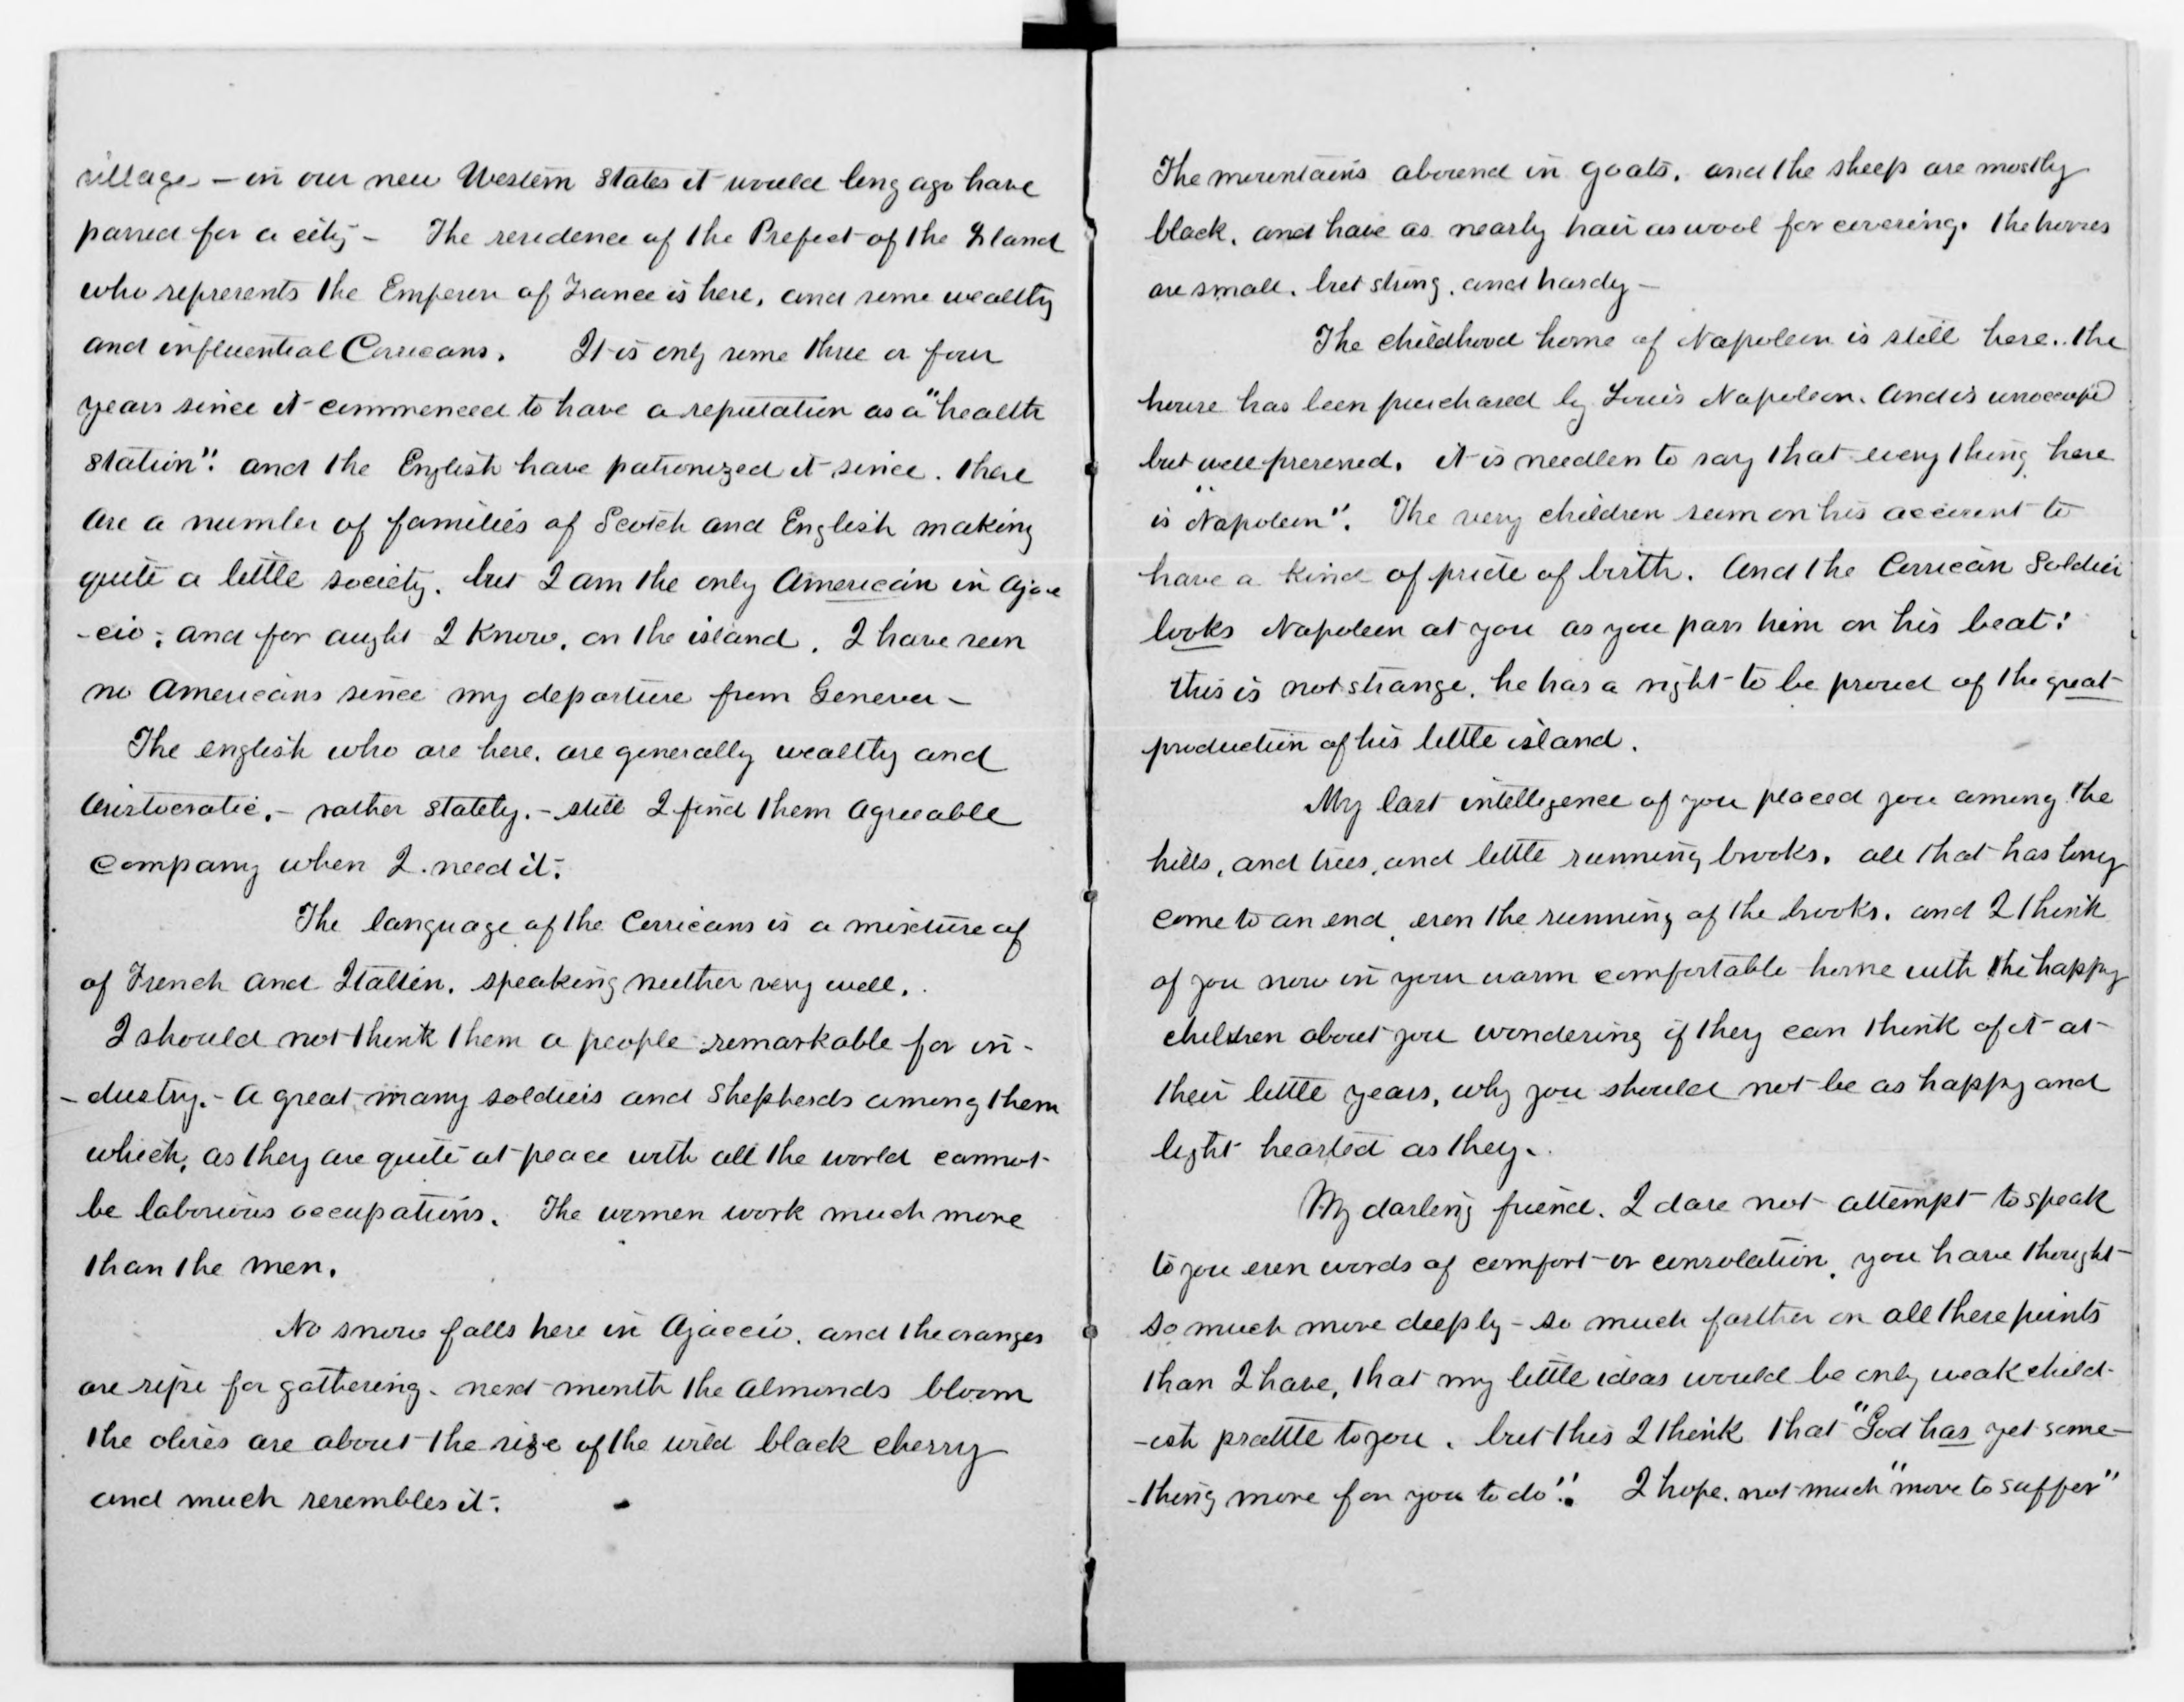 village – in our new Western States it would long ago have
passed for a city – The residence of the Prefect of the Island
who represents the Emperor of France is here, and some wealthy
and influential Corsicans. It is only some three or four
years since it commenced to have a reputation as a "health
station". and the English have patronized it since. there
are a number of families of Scotch and English making
quite a little society. but I am the only American in Ajac
-cio; and for aught I know, on the island. I have seen
no Americans since my departure from Geneva –
The english who are here, are generally wealthy and
Aristocratic, – rather stately. – still I find them Agreeable
Company when I need it.
The language of the Corsicans is a mixture of
of French and Italien, speaking neither very well.
I should not think them a people remarkable for in-
-dustry. – A great many soldiers and Shepherds among them
which, as they are quite at peace with all the world cannot
be laborious occupations. The women work much more
than the men.
No snow falls here in Ajaccio. and the oranges
are ripe for gathering. next month the Almonds bloom
the olives are about the size of the wild black cherry
and much resembles it.
The mountains abound in goats, and the sheep are mostly
black, and have as nearly hair as wool for covering. the horses
are small, but strong, and hardy –
The childhood home of Napoleon is still here. the
house has been purchased by Louis Napoleon. And is unoccupied
but well preserved. it is needless to say that every thing here
is "Napoleon". The very children seem on his account to
have a kind of pride of birth. And the Corsican Soldier
looks Napoleon at you as you pass him on his beat:
this is not strange, he has a right to be proud of the great
production of his little island.
My last intelligence of you placed you among the
hills, and trees, and little running brooks. all that has long
come to an end, even the running of the brooks. and I think
of you now in your warm comfortable home with the happy
children about you wondering if they can think of it at
their little years, why you should not be as happy and
light hearted as they.
My darling friend. I dare not attempt to speak
to you even words of comfort or consolation, you have thought
so much more deeply – so much farther on all these points
than I have, that my little ideas would be only weak child-
-ish prattle to you. but this I think that "God has yet some-
-thing more for you to do". I hope, not much "more to suffer"